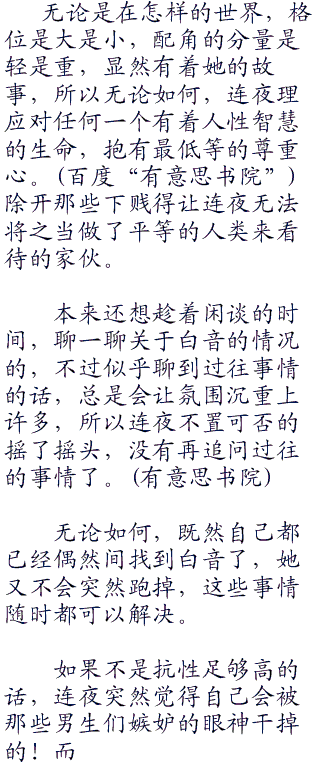 无论是在怎样的世界，格
位是大是小，配角的分量是
轻是重，显然有着她的故
事，所以无论如何，连夜理
应对任何一个有着人性智慧
的生命，抱有最低等的尊重
心。(百度“有意思书院”)
除开那些下贱得让连夜无法
将之当做了平等的人类来看
待的家伙。
本来还想趁着闲谈的时
间，聊一聊关于白音的情况
的，不过似乎聊到过往事情
的话，总是会让氛围沉重上
许多，所以连夜不置可否的
摇了摇头，没有再追问过往
的事情了。(有意思书院)
无论如何，既然自己都
已经偶然间找到白音了，她
又不会突然跑掉，这些事情
随时都可以解决。
如果不是抗性足够高的
话，连夜突然觉得自己会被
那些男生们嫉妒的眼神干掉
的！而